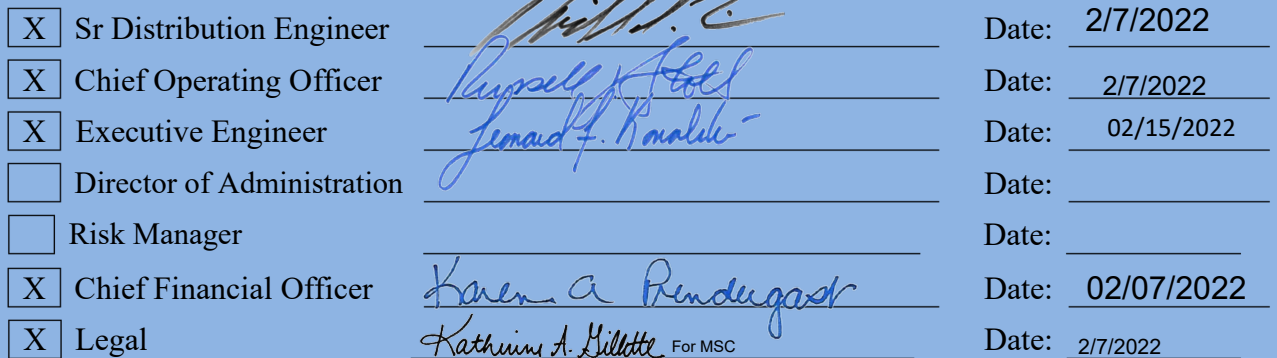 X Sr Distribution Engineer Date: 2/7/2022
X Chief Operating Officer Russell Date: 2/7/2022
X Executive Engineer Leonard F. Date: 02/15/2022
Director of Administration Date:
Risk Manager Date:
X Chief Financial Officer Karen A Prendergast Date: 02/07/2022
X Legal Katherine A. Gillette For MSC Date: 2/7/2022